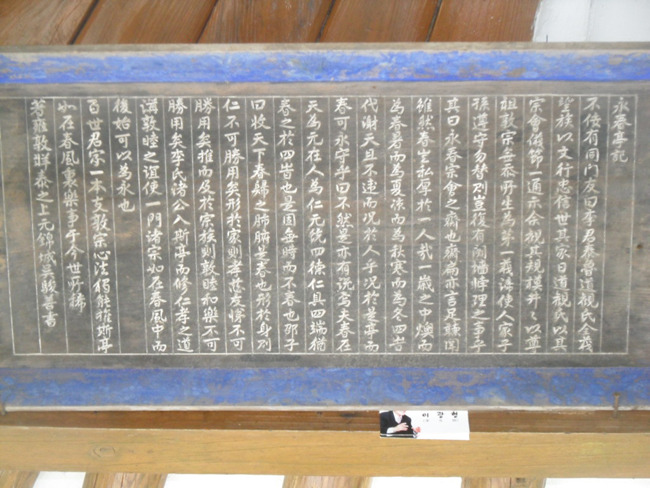 永春亭記
不佞有同門友曰李君泰魯道觀氏全義
望族以文行忠信世其家日道觀氏以其
宗會儀節一通示余觀其規模井々以尊
祖敦宗無忝所生為第一義法使人家子
孫遵守勿替則豈復有鬩牆悖理之事乎
其曰永春宗會之齋也齋扁亦言足聽聞
雖然春豈私厚於一人哉一歲之中燠而
為春暑而為夏凉而為秋寒而為冬四時
代謝天且不違而况於人乎况於是亭而
春可永守乎曰不然是亦有説焉夫春在
天為元在人為仁元統四德仁具四端猶
春之於四時也是固無時而不春也邵子
曰收天下春歸之肺腑是春也形於身則
仁不可勝用矣形於家則孝慈友悌不可
勝用矣推而及於宗族則敦睦和樂不可
勝用矣李氏諸公入斯亭而修仁孝之道
講敦睦之誼使一門諸宗如在春風中而
後始可以為永也
百世君家一本支敦宗心法獨能推斯亭
如在春風裏樂事于今世所稀
著雍敦牂泰之上元錦城吳駿善書